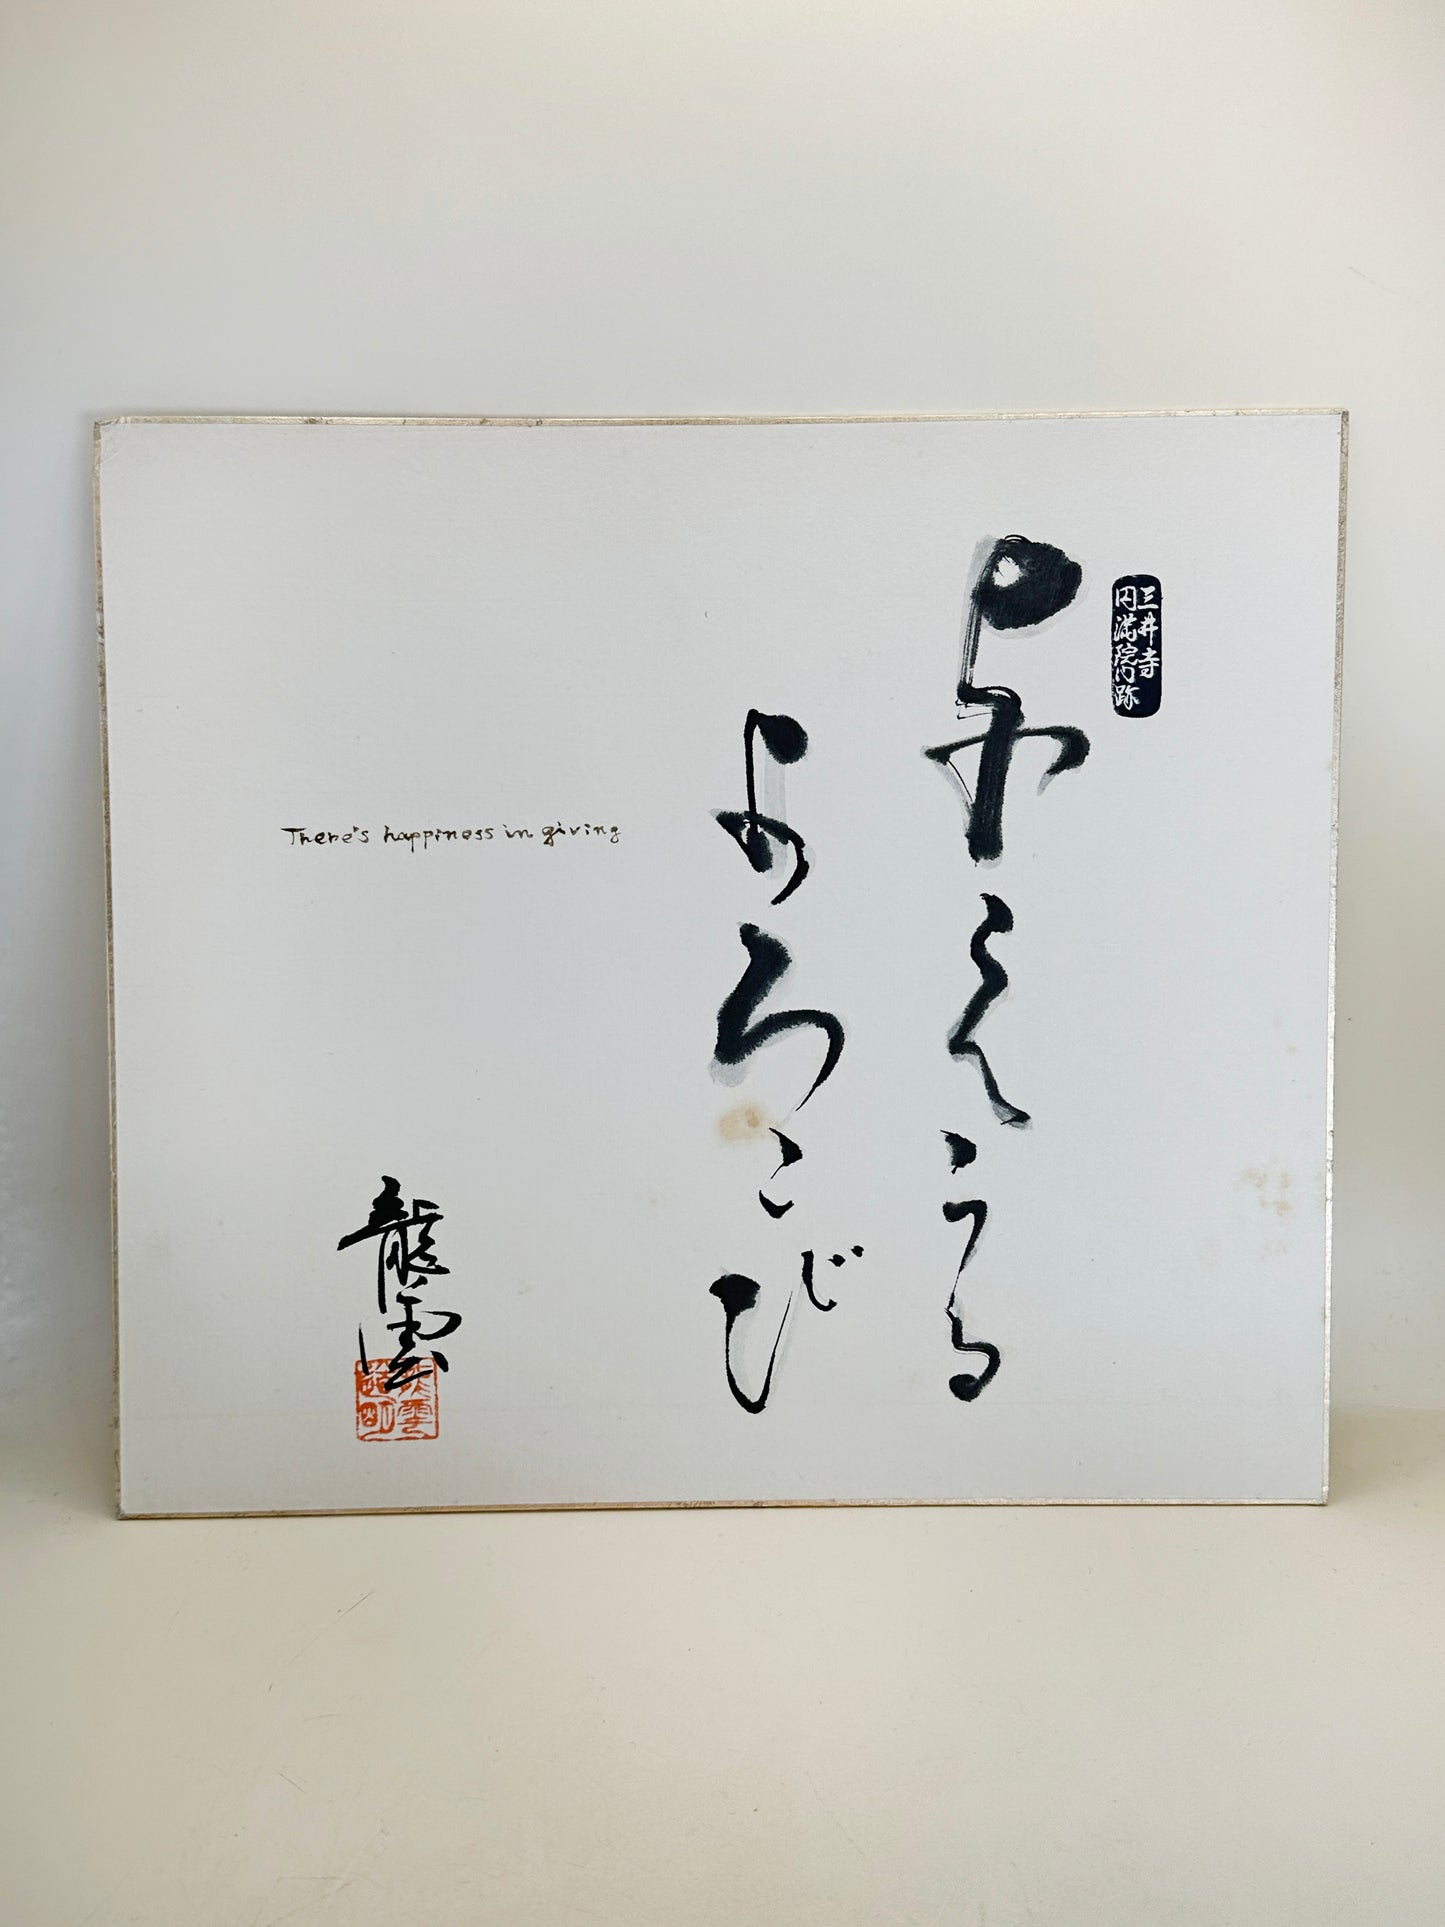 三井寺
円満院門跡
与えうる
よろこび
There's happiness in giving
龍雲